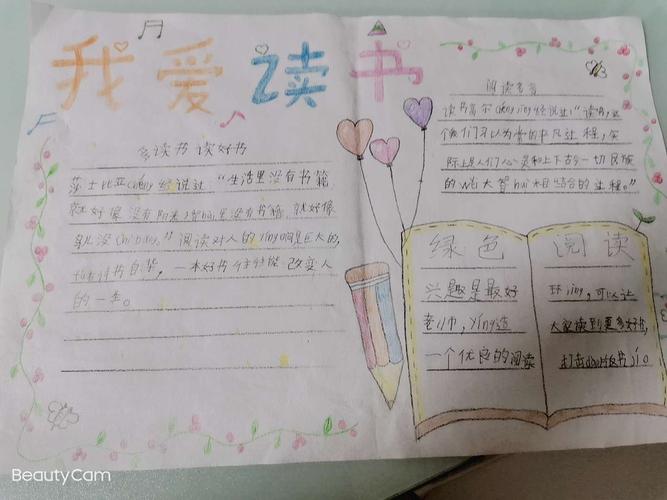 我爱读书
多读书 读好书
莎士比亚céng经说过："生活里没有书籍,
就好像没有阳光,智huì里没有书籍,就好像
鸟儿没chìbǎng。"阅读对人的yǐng响是巨大的,
书自华,一本好书往往能改变人
的一生。
阅读名言
读书高尔 céng jīng经说过:"读书,这
个我们习以为常的平凡过程,实
际上是人们心灵和上下古今一切民族
的wěi大智huì相结合的过程。"
绿色
兴趣是最好
老师,yíng造
一个优良的阅读
阅读
环jìng,可以让
大家读到更多好书,
打击dào版书jí。
BeautyCam